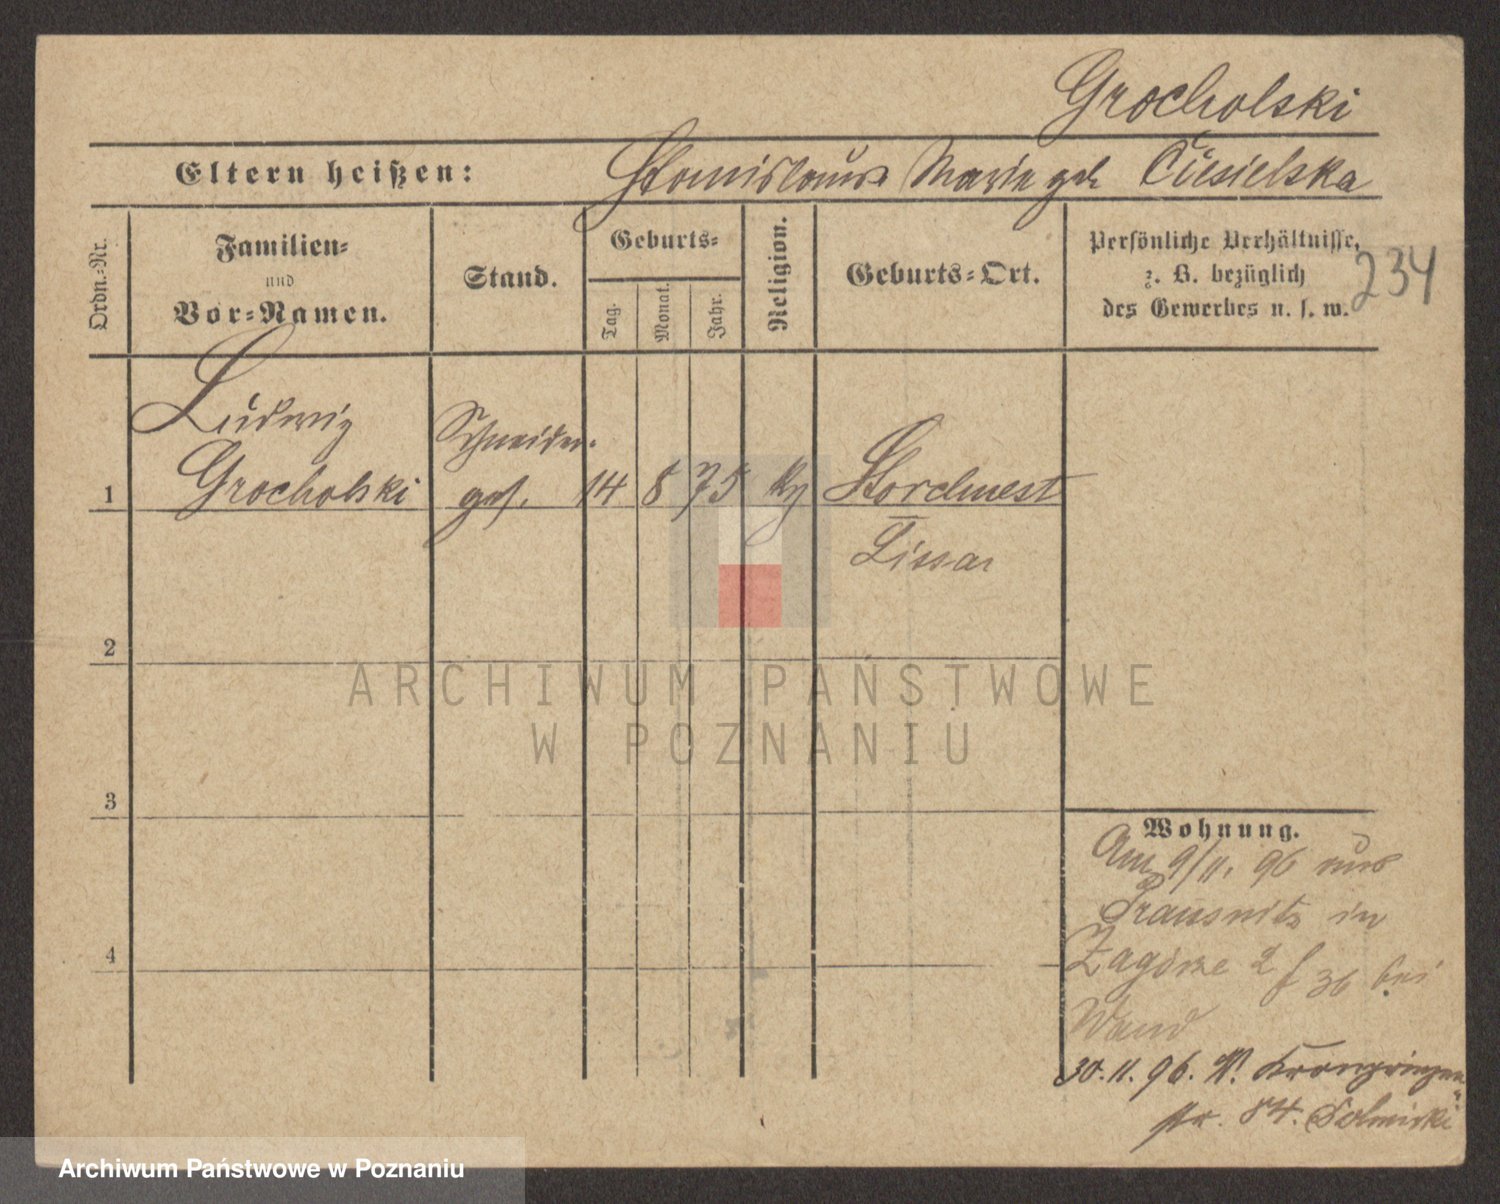 Grocholski
Eltern heißen: Stanislaus Marie geb Ciesielska
Ordn.-Nr.
Familien-
und
Vor-Namen.
Stand.
Geburts-
Tag.
Monat.
Jahr.
Religion.
Geburts-Ort.
Persönliche Verhältnisse,
z. B. bezüglich
des Gewerbes u. s. w.
234
Ludwig
Grocholski
Schneider-
ges.
1
14 8 75
Storchnest
Lissa
2
3
4
Wohnung.
Am 9/11. 96 aus
Prausnitz in
Zagórze 2 f 36 bei
Wand
30.11.96. W. Kronprinzen-
str. 84.
ARCHIWUM PAŃSTWOWE
W POZNANIU
Archiwum Państwowe w Poznaniu